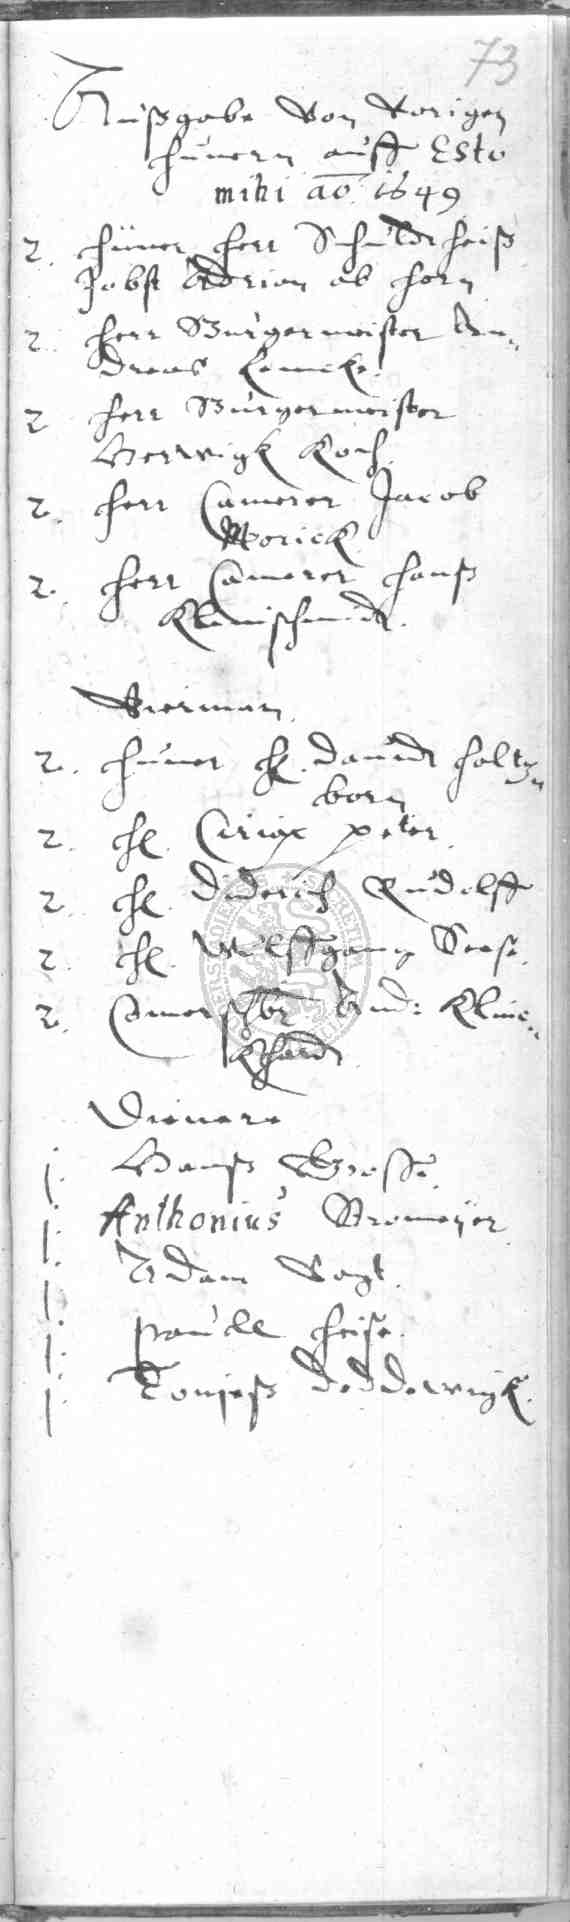 73
Außgabe Von Vorigen
hünern auff Esto
mihi ao. 1649
2. hüner herr Schuldtheiß
Jobst Adrian ab horn
2. herr Bürgermeister An-
dreas Lemcke.
2 herr Bürgermeister
Herwigk Koch.
2. herr Camerer Jacob
Morick
2. herr Camerer hanß
Kleinschmidt.
Vierman
2. hüner H. Davidt holtz-
born
2. H. Ciriax peter.
2. H. Diderich Rudolff
2. H. Wulffgang Seese.
2. Camerschr And: Kline-
Khardt
Dienere
1. Hanß Grosse.
1. Anthonius Bromeÿer
1. Adam Vogt.
1. paull heise.
1. Tonjeß Deddewigk.